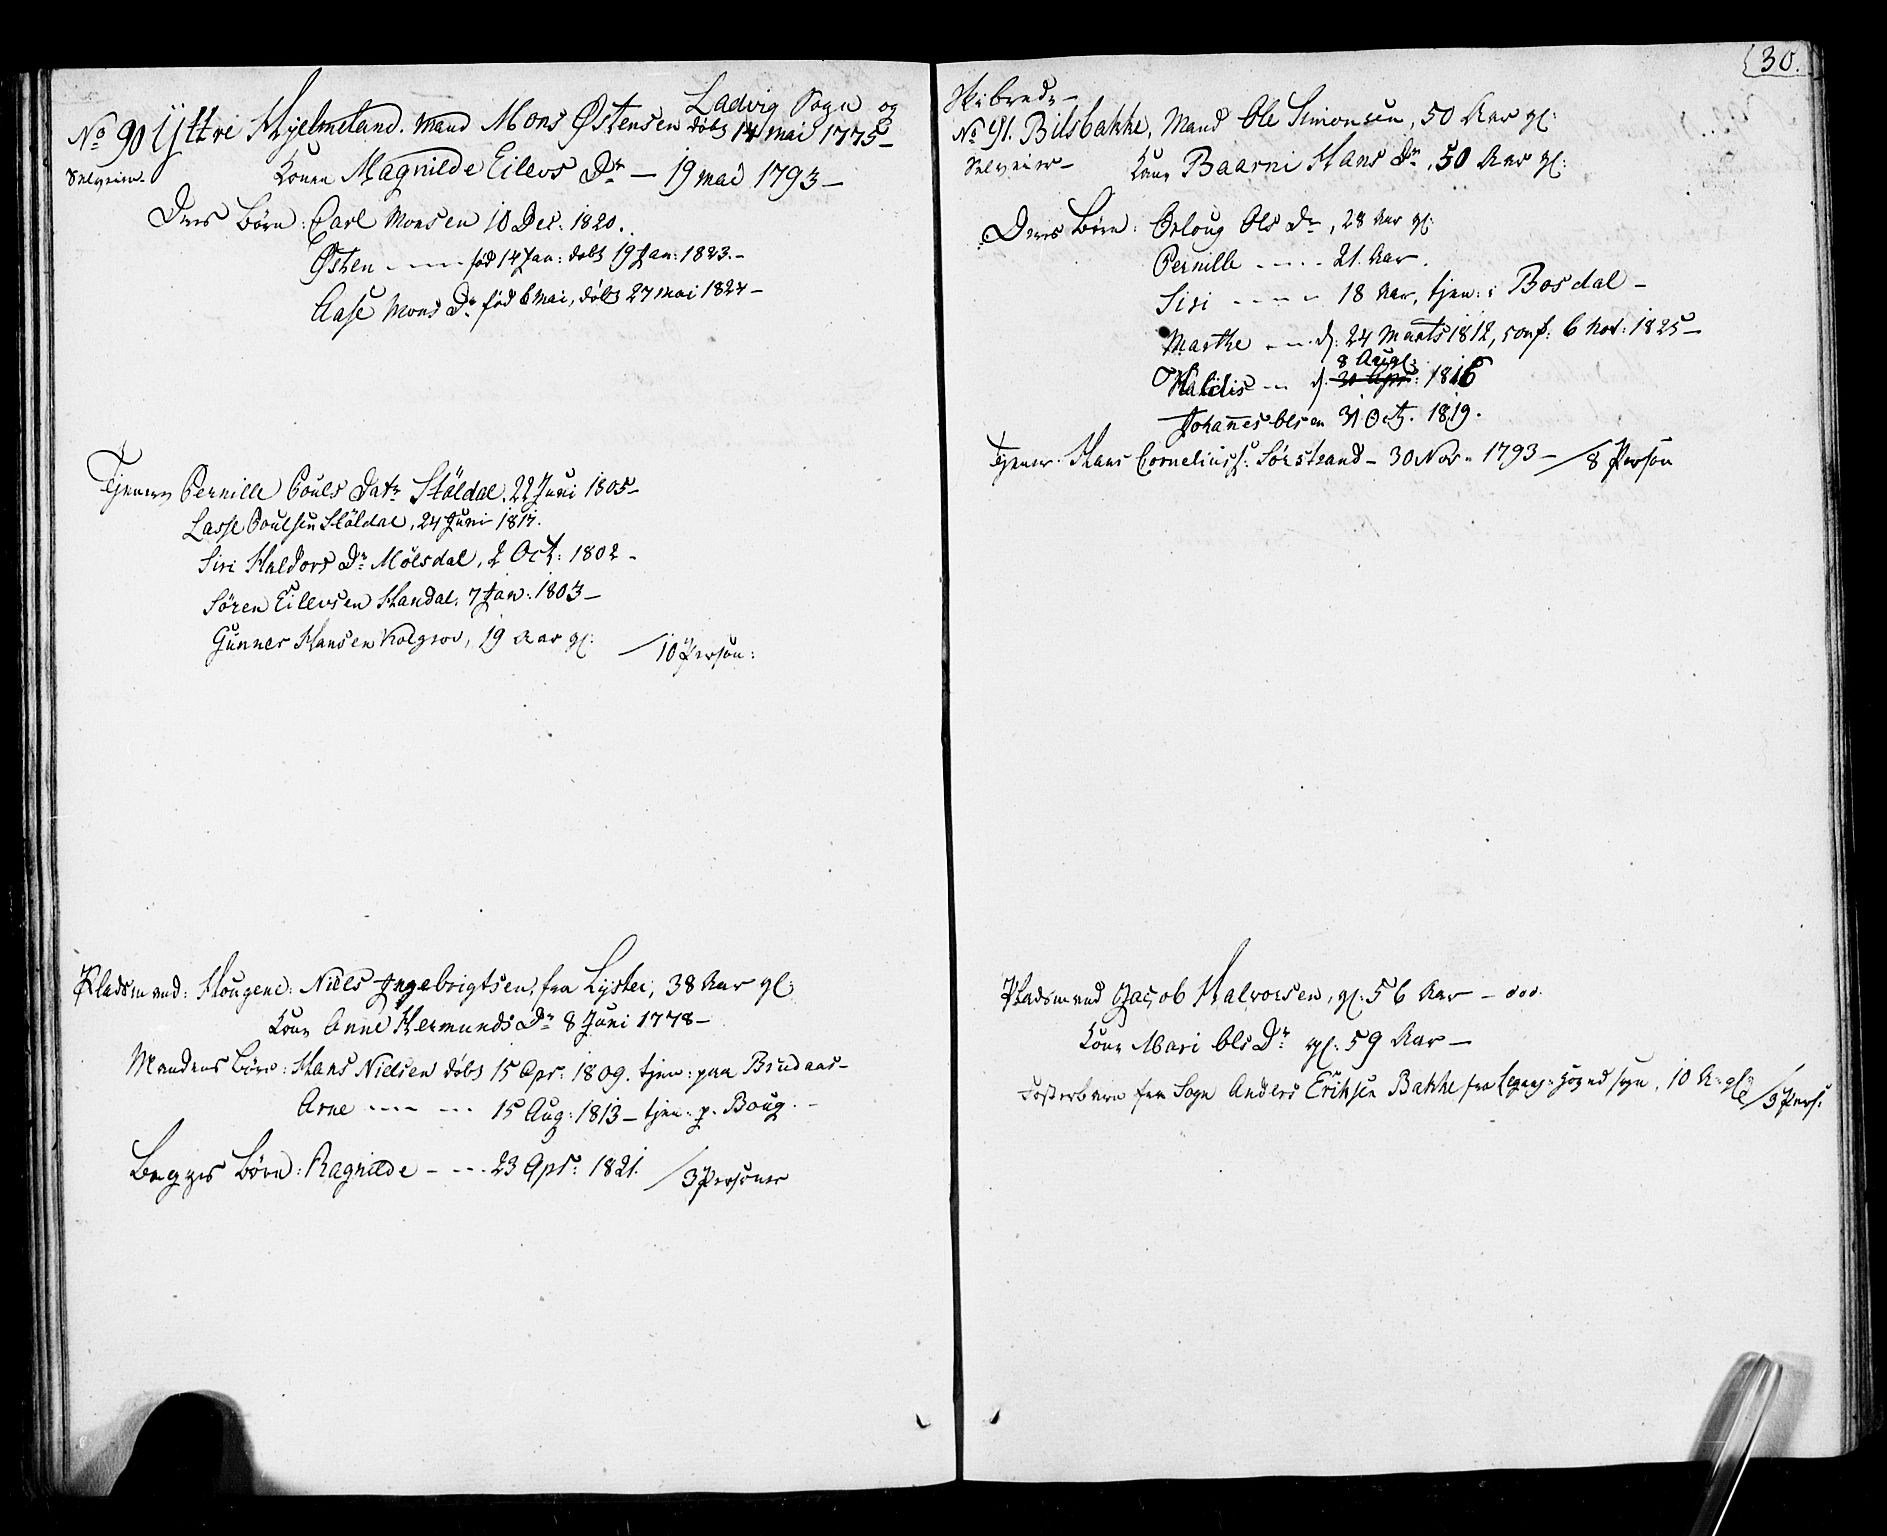 Ladvig Sogn og
No 90 Yttre Hjelmeland. Mand Mons Østensen døbt 14 mai 1775 –
Selveier.
Kone Magnilde Eilevs Dr – 19 mai 1793 –
Deres Børn: Carl Monsen 10 Dec: 1820.
Østen - - - - fød 14 Jan: døbt 19 Jan: 1823. –
Aase Mons Dr fød 6 mai, døbt 27 mai 1824 –
Tjenere Pernille Pouls Datr Stöldal. 22 Juni 1805 –
Lasse Poulsen Stöldal, 24 Juni 1811.
Siri Haldors Dr Mölsdal, 2 Oct: 1802 –
Sören Eilevsen Handal. 7 Jan: 1803 –
Gunner Hansen Kolgrov, 19 Aar gl: / 10 Person:
Pladsmand: Hougene: Niels Ingebrigtsen, fra Lyster, 38 Aar gl:
Kone Anne Hermunds Dr 8 Juni 1778 –
Mandens Børn: Hans Nielsen døbt 15 Apr: 1809. tjen: paa Brudaas –
Arne - - - - - 15 Aug: 1813 – tjen: p. Boug. –
Begges Børn: Ragnilde - - - 23 Apr: 1821. / 3 Personer
30.
Skibrede –
No 91. Bilsbakke, Mand Ole Simonsen, 50 Aar gl:
Selveier –
Kone Baarni Hans Dr, 50 Aar gl:
Deres Børn: Orloug Ols Dr, 28 Aar gl:
Pernille - - - - 21. Aar.
Siri - - - - 18 Aar, tjen: i Bosdal –
Marthe - - - d: 24 Marts 1812, conf: 6 Nov: 1825 –
8 Augt:
Haldis - - d. 30 Apr: 1816
Johannes Olsen 31 Oct. 1819.
Tjener. Hans Corneliuss: Sørstrand – 30 Nov – 1793 – / 8 Person
Pladsmand Jacob Halvorsen, gl: 56 Aar –
Kone Mari Ols Dr gl: 59 Aar –
Fosterbarn fra Sogn Anders Eriksen Bakke fra sogn, 10 A: gl: / 3 Pers: